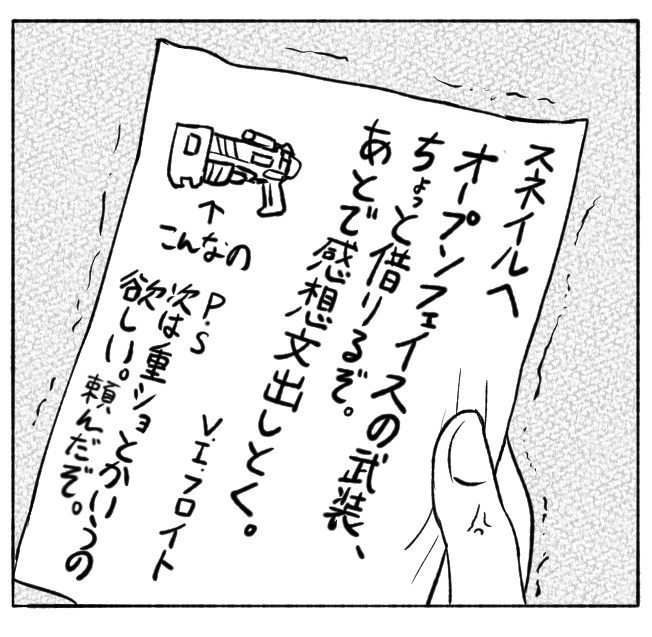 スネイルへ
オープンフェイスの武装、
ちょっと借りるぞ。
あとで感想文出しとく。
V.I.フロイト
↑
こんなの
P.S
次は重ショとかいうの
欲しい。頼んだぞ。